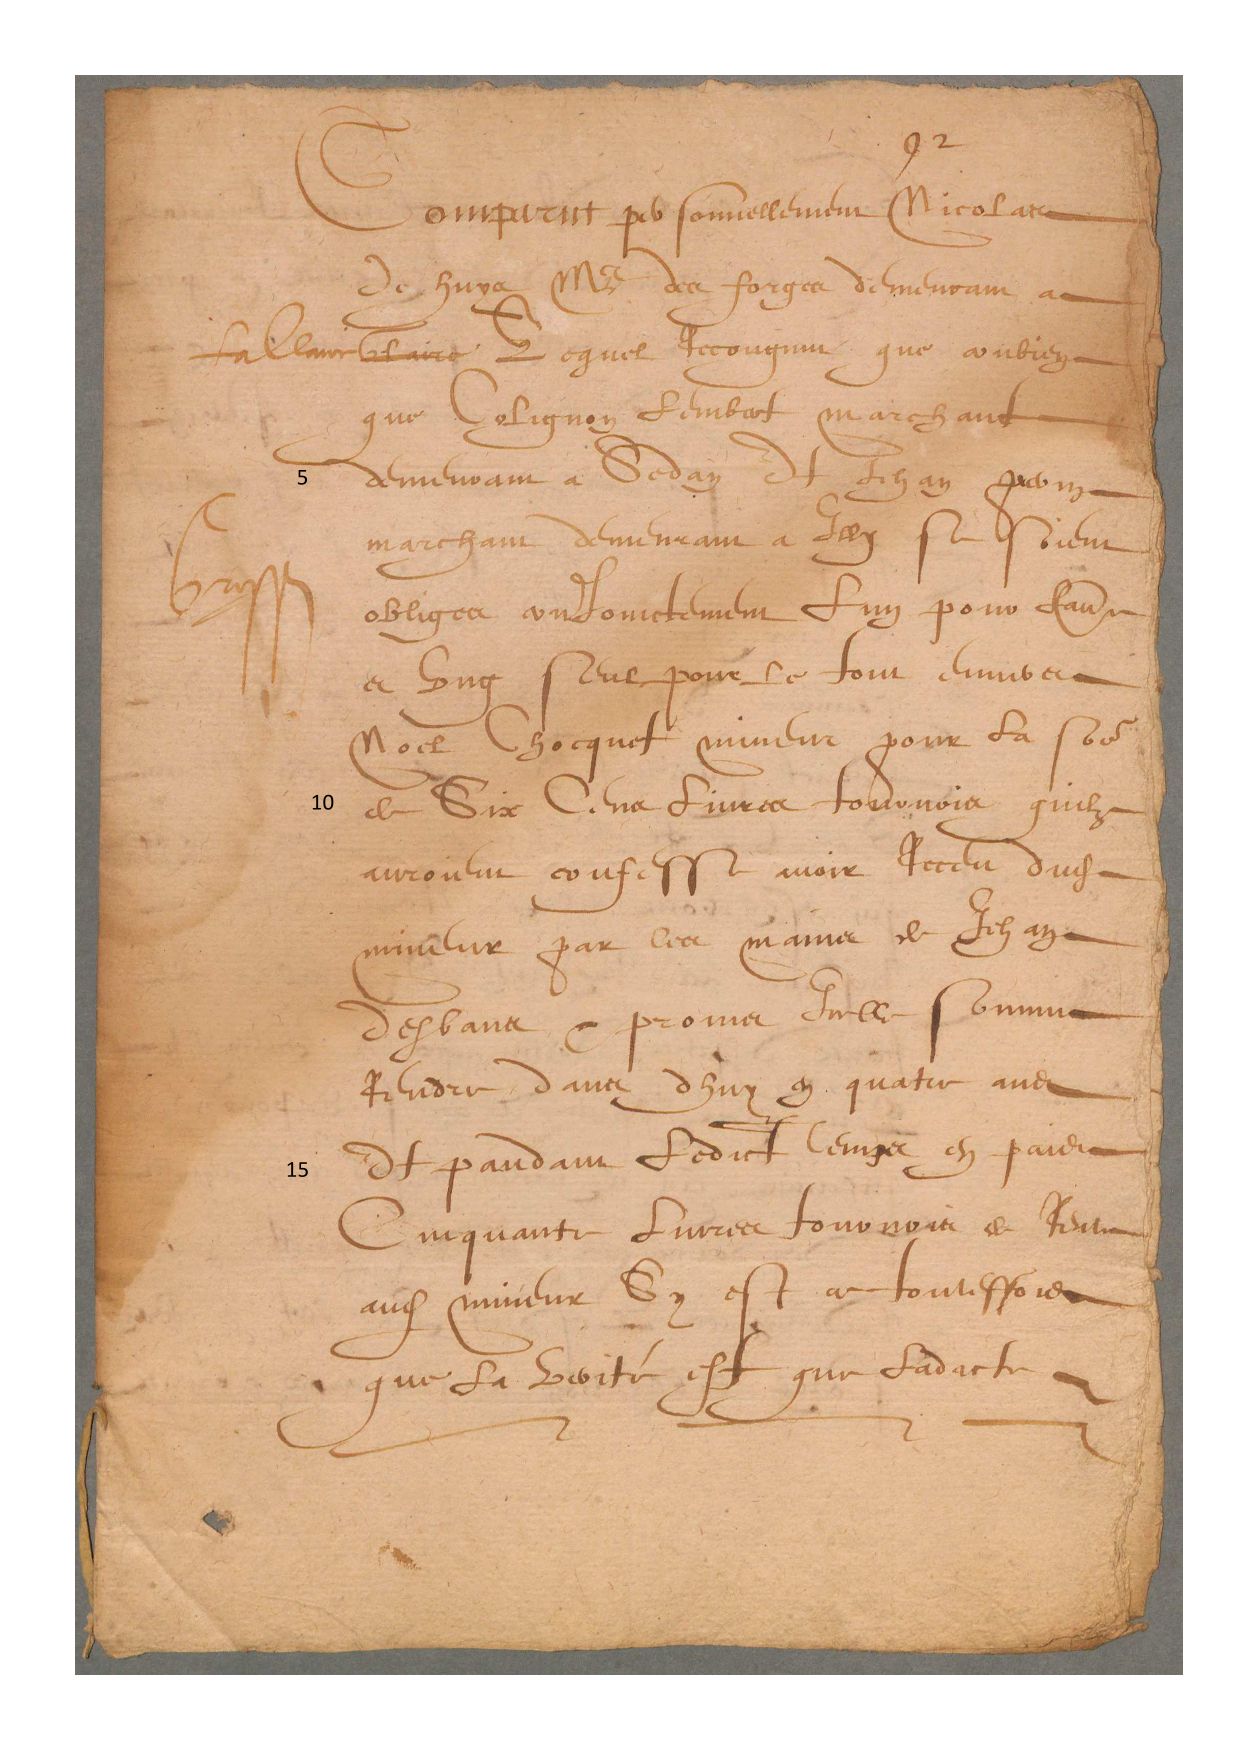 92
Comparut personnellement Nicolas
de huys Me des forges demeurant a
la Claire Lequel Recongnut que combien
que Colignon Lembert marchant
5 demeurant a Sedan Et Jehan
marchant demeurant a se soient
obliges conJoinctement Lun pour Laultre
et ung seul pour le tout envers
Noel Chocquet mineur pour La some
10 de Six Cens Livres tournois quilz
auroient confesse avoir Receu dud
mineur par les mains de Jehan
desbans & promis Icelle somme
Rendre dans dhuy en quatre ans
15 Et pandant Ledict temps en paier
Cinquante Livres tournois de Rente
aud mineur Sy est ce touteffois
que La verité est que Ladacte